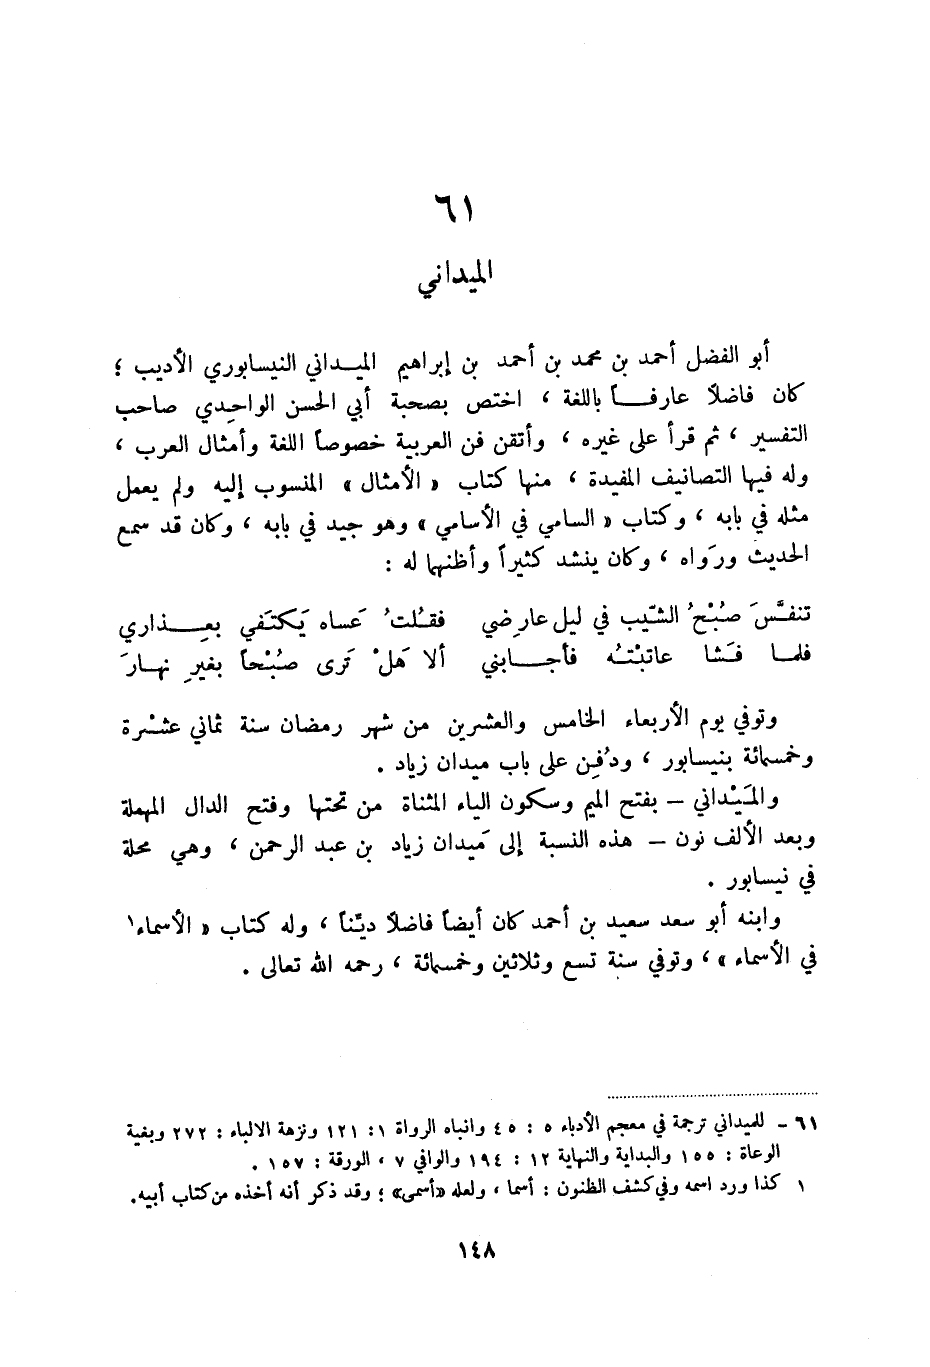 ٦١
الميداني
أبو الفضل أحمد بن محمد بن أحمد بن إبراهيم الميـداني النيسابوري الأديب ؛
كان فاضلاً عارفـاً باللغة ، اختص بصحبة أبي الحسن الواحِدي صاحب
التفسير ، ثم قرأ على غيره ، وأتقن فن العربية خصوصاً اللغة وأمثال العرب ،
وله فيها التصانيف المفيدة ، منها كتاب « الأمثال » المنسوب إليه ولم يعمل
مثله في بابه ، وكتاب « السامي في الأسامي » وهو جيد في بابه ، وكان قد سمع
الحديث ورَواه ، وكان ينشد كثيراً وأظنهما له :
تنفَّسَ صُبْحُ الشَّيب في ليل عارِضي فقلُتُ عَساه يَكتَفي بعِــذاري
فلمـا فَشَا عاتبْتُه فأجـابني ألا هَلْ تَرى صُبْحاً بغيرِ نهـارَ
وتوفي يوم الأربعاء الخامس والعشرين من شهر رمضان سنة ثماني عشْرة
وخمسمائة بنيسابور ، ودُفِن على باب ميدان زياد .
والمَيْداني – بفتح الميم وسكون الياء المثناة من تحتها وفتح الدال المهملة
وبعد الألف نون – هذه النسبة إلى مَيدان زياد بن عبد الرحمن ، وهي محلة
في نيسابور .
وابنه أبو سعد سعيد بن أحمد كان أيضاً فاضلاً ديّناً ، وله كتاب « الأسماء١
في الأسماء » ، وتوفي سنة تسع وثلاثين وخمسمائة ، رحمه الله تعالى .
٦١ - للميداني ترجمة في معجم الأدباء ٥ : ٤٥ وانباه الرواة ١ : ١٢١ ونزهة الالباء : ٢٧٢ وبغية
الوعاة : ١٥٥ والبداية والنهاية ١٢ : ١٩٤ والوافي ٧ ، الورقة : ١٥٧ .
١ كذا ورد اسمه وفي كشف الظنون : أسما ، ولعله «أسمى» ؛ وقد ذكر أنه أخذه من كتاب أبيه.
١٤٨